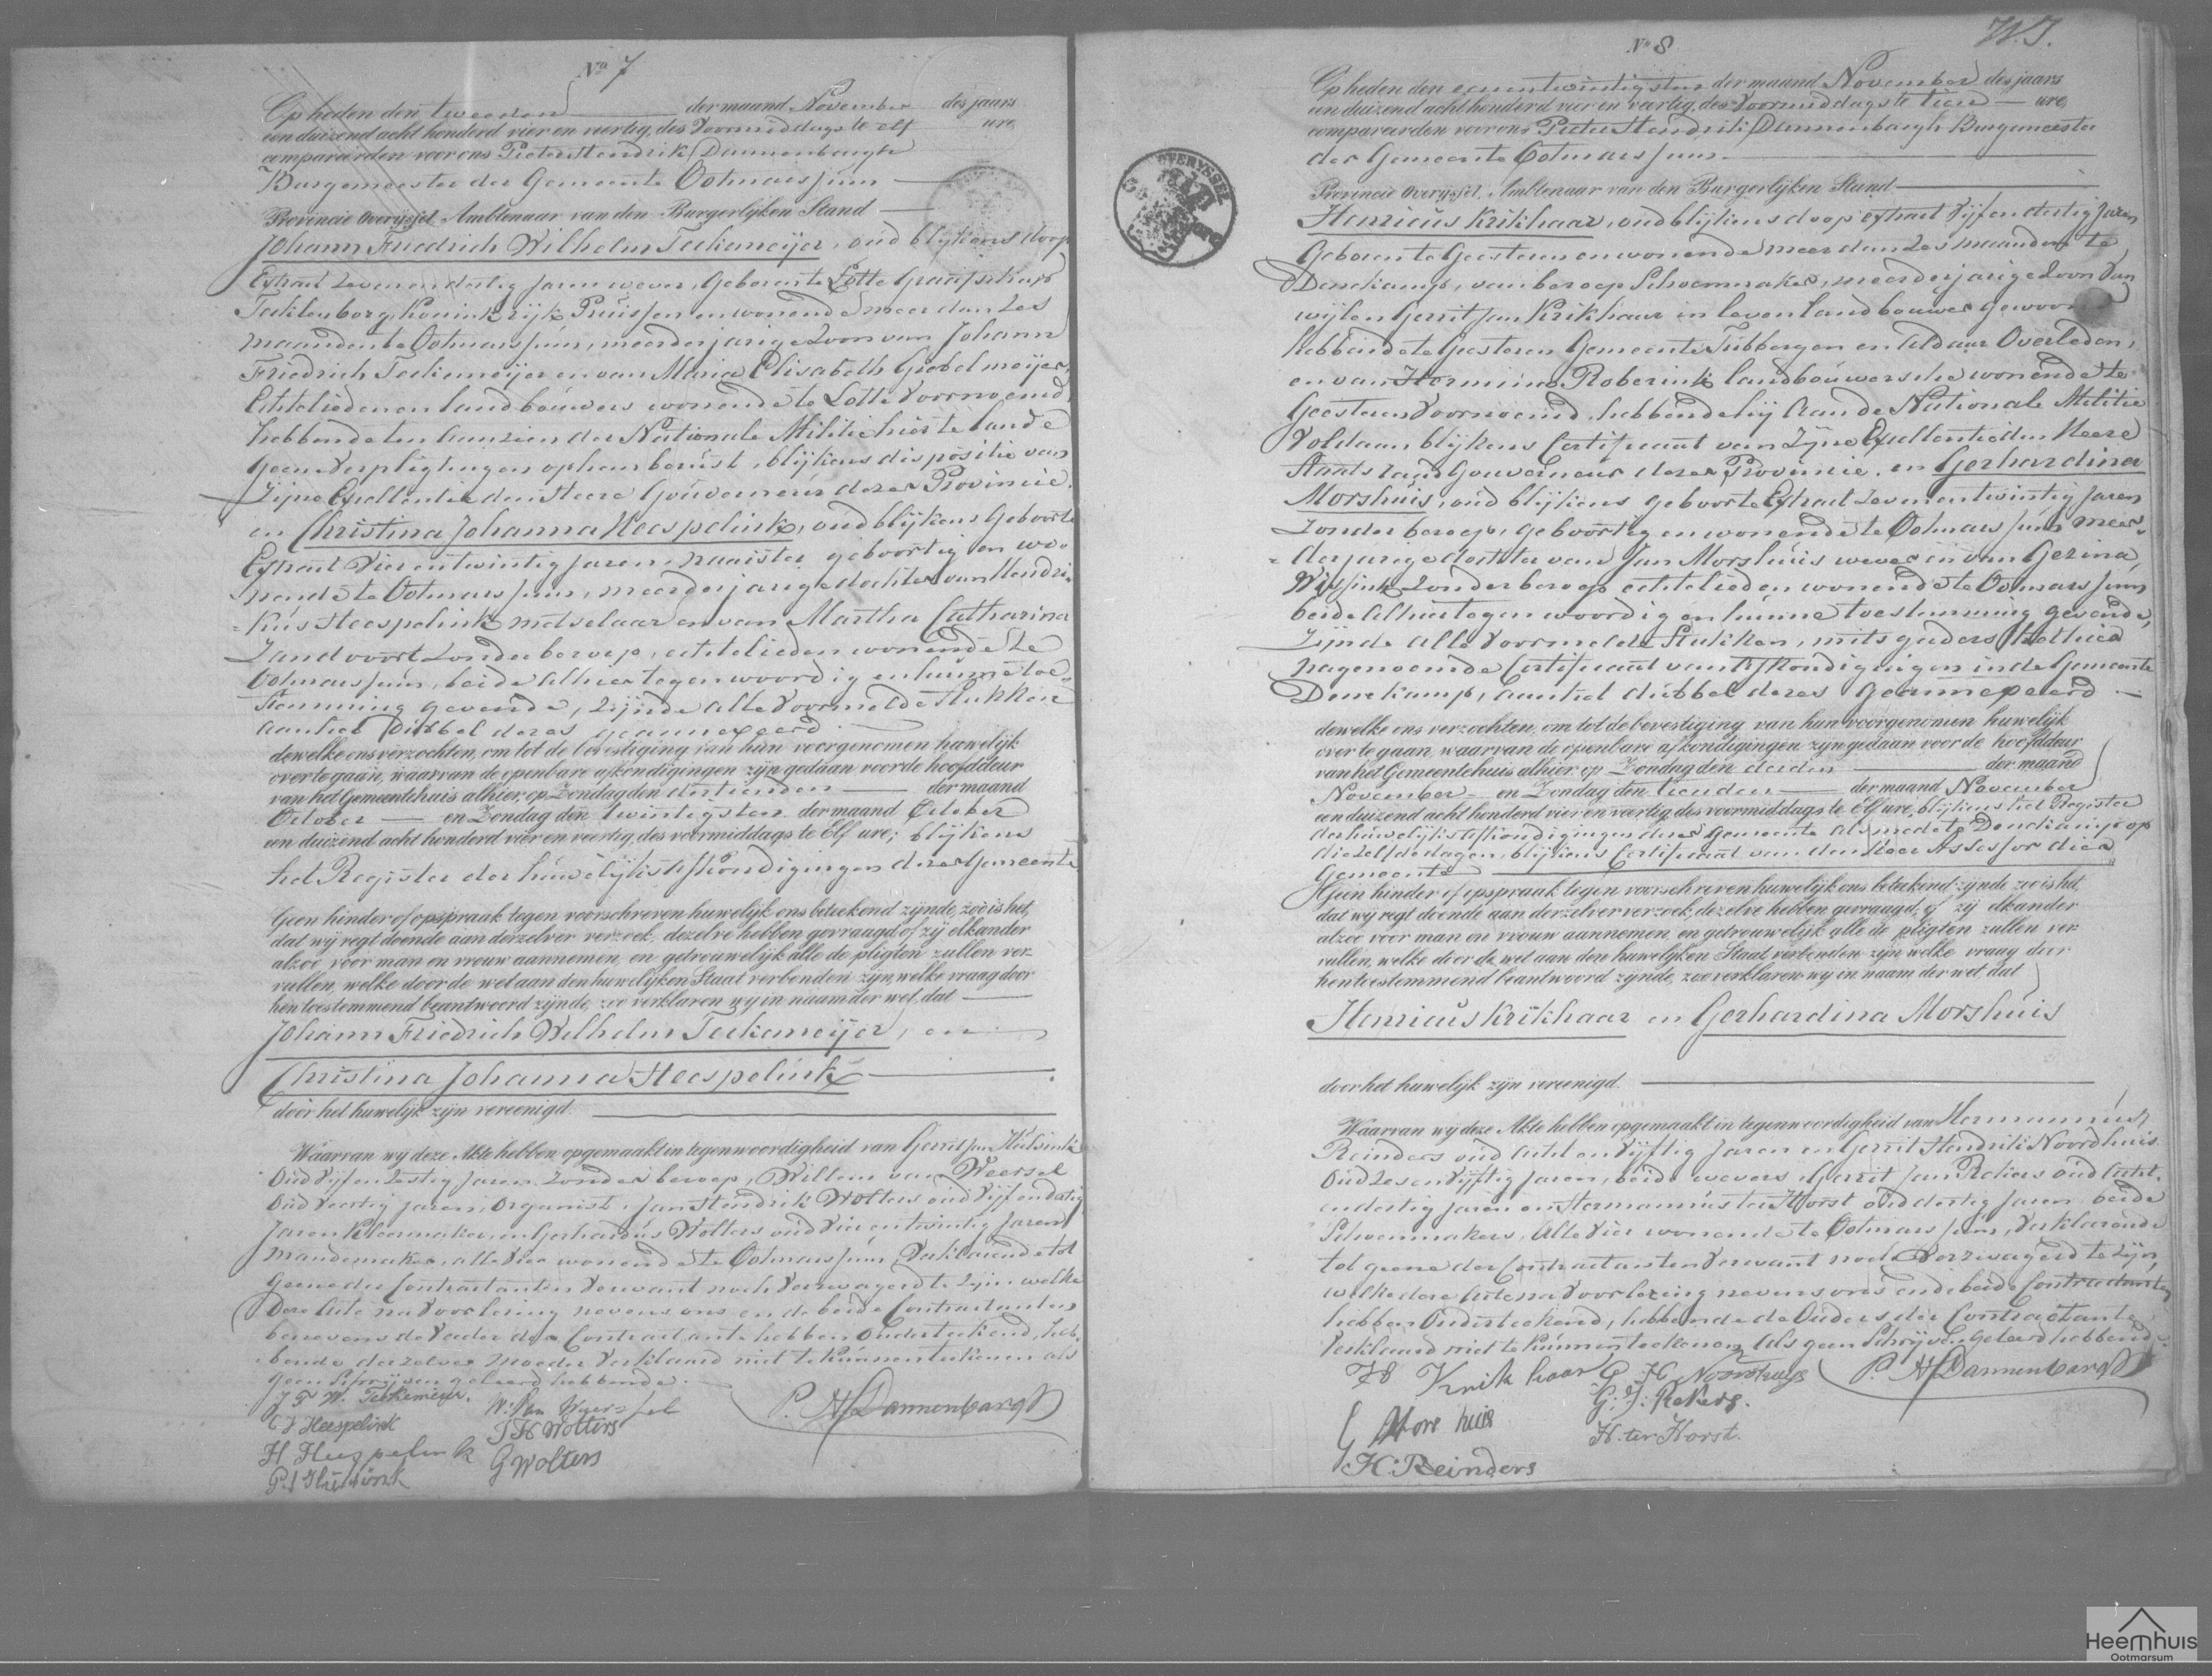 No 7
Op heden den tweeden der maand November des jaars
een duizend acht honderd vier en veertig, des Voormiddags te elf ure
compareerden voor ons Pieter Hendrik Dannenbargh
Burgemeester der Gemeente Ootmarssum
Provincie Overijssel, Ambtenaar van den Burgerlijken Stand
Johann Friedrich Wilhelm Teekemeijer, oud blijkens doop
Extract zeven en dertig Jaren wever, Geboren te Lotte Graafschap
Teklenborg, Koninkrijk Pruissen en wonende meer dan zes
maanden te Ootmarssum, meerderjarige Zoon van Johann
Friedrich Teekemeijer en van Maria Elisabeth Giebelmeijer,
Echtelieden en landbouwers wonende te Lotte Voornoemd,
hebbende ten aanzien der Nationale Militie hier te lande
geen verpligtingen op hem berust, blijkens dispositie van
Zijne Excellentie den Heere Gouverneur dezer Provincie,
en Christina Johanna Heespelink, oud blijkens Geboorte
Extract Vier en twintig Jaren, naaister, geboortig en wo-
nende te Ootmarssum, meerderjarige dochter van Hendri-
kus Heespelink metselaar en van Martha Catharina
Zandvoort zonder beroep, echtelieden wonende te
Ootmarssum, beide alhier tegenwoordig en hunne toe-
stemming gevende, zijnde alle voormelde stukken
aan het dubbel dezes geannexeerd
dewelke ons verzochten, om tot de bevestiging van hun voorgenomen huwelijk
over te gaan, waarvan de openbare afkondigingen zijn gedaan voor de hoofddeur
van het Gemeentehuis alhier, op Zondag den dertienden der maand
October en Zondag den twintigsten der maand October
een duizend acht honderd vier en veertig, des voormiddags te Elf ure; blijkens
het Register der huwelijks afkondigingen dezer Gemeente
Geen hinder of opspraak tegen voorschreven huwelijk ons bekend zijnde, zoo is het,
dat wij regt doende aan derzelver verzoek, dezelve hebben gevraagd, of zij elkander
alzoo voor man en vrouw aannemen, en getrouwelijk alle de pligten zullen ver-
vullen, welke door de wet aan den huwelijken Staat verbonden zijn, welke vraag door
hen toestemmend beantwoord zijnde, zoo verklaren wij in naam der wet, dat
Johann Friedrich Wilhelm Teekemeijer, en
Christina Johanna Heespelink
door het huwelijk zijn vereenigd.
Waarvan wij deze Akte hebben opgemaakt in tegenwoordigheid van Gerrit Jan
Oud Vijf en Zestig Jaren Zonder beroep, Willem van Weersel
Oud Veertig Jaren, Organist, Jan Hendrik Wolters oud Vijf en dertig
Jaren Kleermaker, en Gerhardus Wolters oud Vier en twintig Jaren
Mandemaker, alle vier wonende te Ootmarssum, Verklarende tot
geene der Contractanten Verwant noch Verzwagerd te zijn welke
Deze Acte na Voorlezing nevens ons en de beide Contractanten
benevens de Vader der Contractante hebben Onderteekend, heb-
bende derzelver Moeder Verklaard niet te kunnen teekenen als
geen schrijven geleerd hebbende.
J F W. Teekemeijer.
C J Heespelink
H Heespelink
W: Van Weersel
J H Wolters
G Wolters
P. H Dannenbargh
No 8
Op heden den eenentwintigsten der maand November des jaars
een duizend acht honderd vier en veertig, des Voormiddags te tien ure
compareerden voor ons Pieter Hendrik Dannenbargh Burgemeester
der Gemeente Ootmarssum
Provincie Overijssel, Ambtenaar van den Burgerlijken Stand
Henricus Krikhaar, oud blijkens doop extract Vijf en dertig Jaren
Geboren te Geesteren en wonende meer dan zes maanden te
Denekamp, van beroep Schoenmaker, meerderjarige Zoon van
wijlen Gerrit Jan Krikhaar in leven landbouwer gewoond
hebbende te Geesteren Gemeente Tubbergen en aldaar Overleden,
en van Hermina Roberink landbouwersche wonende te
Geesteren Voornoemd, hebbende hij aan de Nationale Militie
Voldaan blijkens Certificaat van Zijne Excellentie den Heere
Staatsraad Gouverneur dezer Provincie, en Gerhardina
Morshuis, oud blijkens geboorte Extract Zeven en twintig Jaren
Zonder beroep, geboortig en wonende te Ootmarssum meer-
derjarige dochter van Jan Morshuis wever en van Gezina
Wissink Zonder beroep echtelieden wonende te Ootmarssum
beide alhier tegenwoordig en hunne toestemming gevende,
Zijnde alle Voormelde Stukken, mitsgaders het hier
nagenoemde Certificaat van Afkondigingen in de Gemeente
Denekamp, aan het dubbel dezes geannexeerd
dewelke ons verzochten, om tot de bevestiging van hun voorgenomen huwelijk
over te gaan, waarvan de openbare afkondigingen zijn gedaan voor de hoofddeur
van het Gemeentehuis alhier, op Zondag den derden der maand
November en Zondag den tienden der maand November
een duizend acht honderd vier en veertig, des voormiddags te Elf ure, blijkens het Register
der huwelijks afkondigingen dezer Gemeente als mede te Denekamp op
diezelfde dagen, blijkens Certificaat van den Heer Assessor dier
Gemeente
Geen hinder of opspraak tegen voorschreven huwelijk ons bekend zijnde, zoo is het,
dat wij regt doende aan derzelver verzoek, dezelve hebben gevraagd, of zij elkander
alzoo voor man en vrouw aannemen, en getrouwelijk alle de pligten zullen ver-
vullen, welke door de wet aan den huwelijken Staat verbonden zijn, welke vraag door
hen toestemmend beantwoord zijnde, zoo verklaren wij in naam der wet, dat
Henricus Krikhaar en Gerhardina Morshuis
door het huwelijk zijn vereenigd.
Waarvan wij deze Akte hebben opgemaakt in tegenwoordigheid van Hermannus
Reinders oud Acht en Vijftig Jaren en Gerrit Hendrik Noordhuis
Oud Zes en Vijftig Jaren, beide wevers, Gerrit Jan Rekers oud Acht
en dertig Jaren en Hermannus ter Horst oud dertig Jaren beide
Schoenmakers, Alle Vier wonende te Ootmarssum, Verklarende
tot geene der Contractanten Verwant noch Verzwagerd te zijn,
welke deze Acte na Voorlezing nevens ons en de beide Contractanten
hebben Onderteekend, hebbende de Ouders der Contractante
Verklaard niet te kunnen teekenen als geen Schrijven geleerd hebbende
H Krikhaar
G Morshuis
H: Reinders
G H Noordhuys
G: J: Rekers.
H. ter Horst.
P. H Dannenbargh
OVERYSSEL
Heemhuis
Ootmarsum